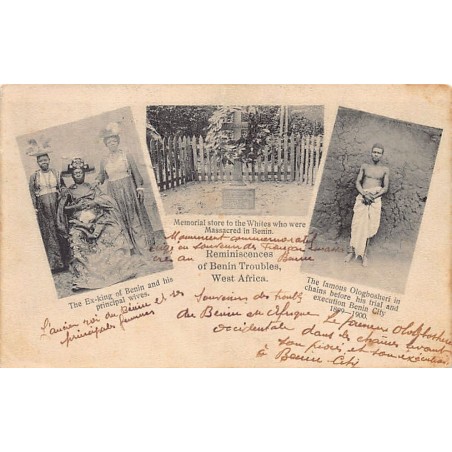 Memorial store to the Whites who were
Massacred in Benin.
Monument commemoratif
en souvenir des
au Bénin
Reminiscences
of Benin Troubles,
West Africa.
The Ex-king of Benin and his
principal wives.
L'ancien roi du Bénin et ses
principales femmes
The famous Ologbosheri in
chains before his trial and
execution Benin City
1899–1900.
Souvenirs des troubles
du Bénin en Afrique
occidentale
Le fameux Ologbosheri
dans les chaînes avant
son procès et son exécution
à Benin City